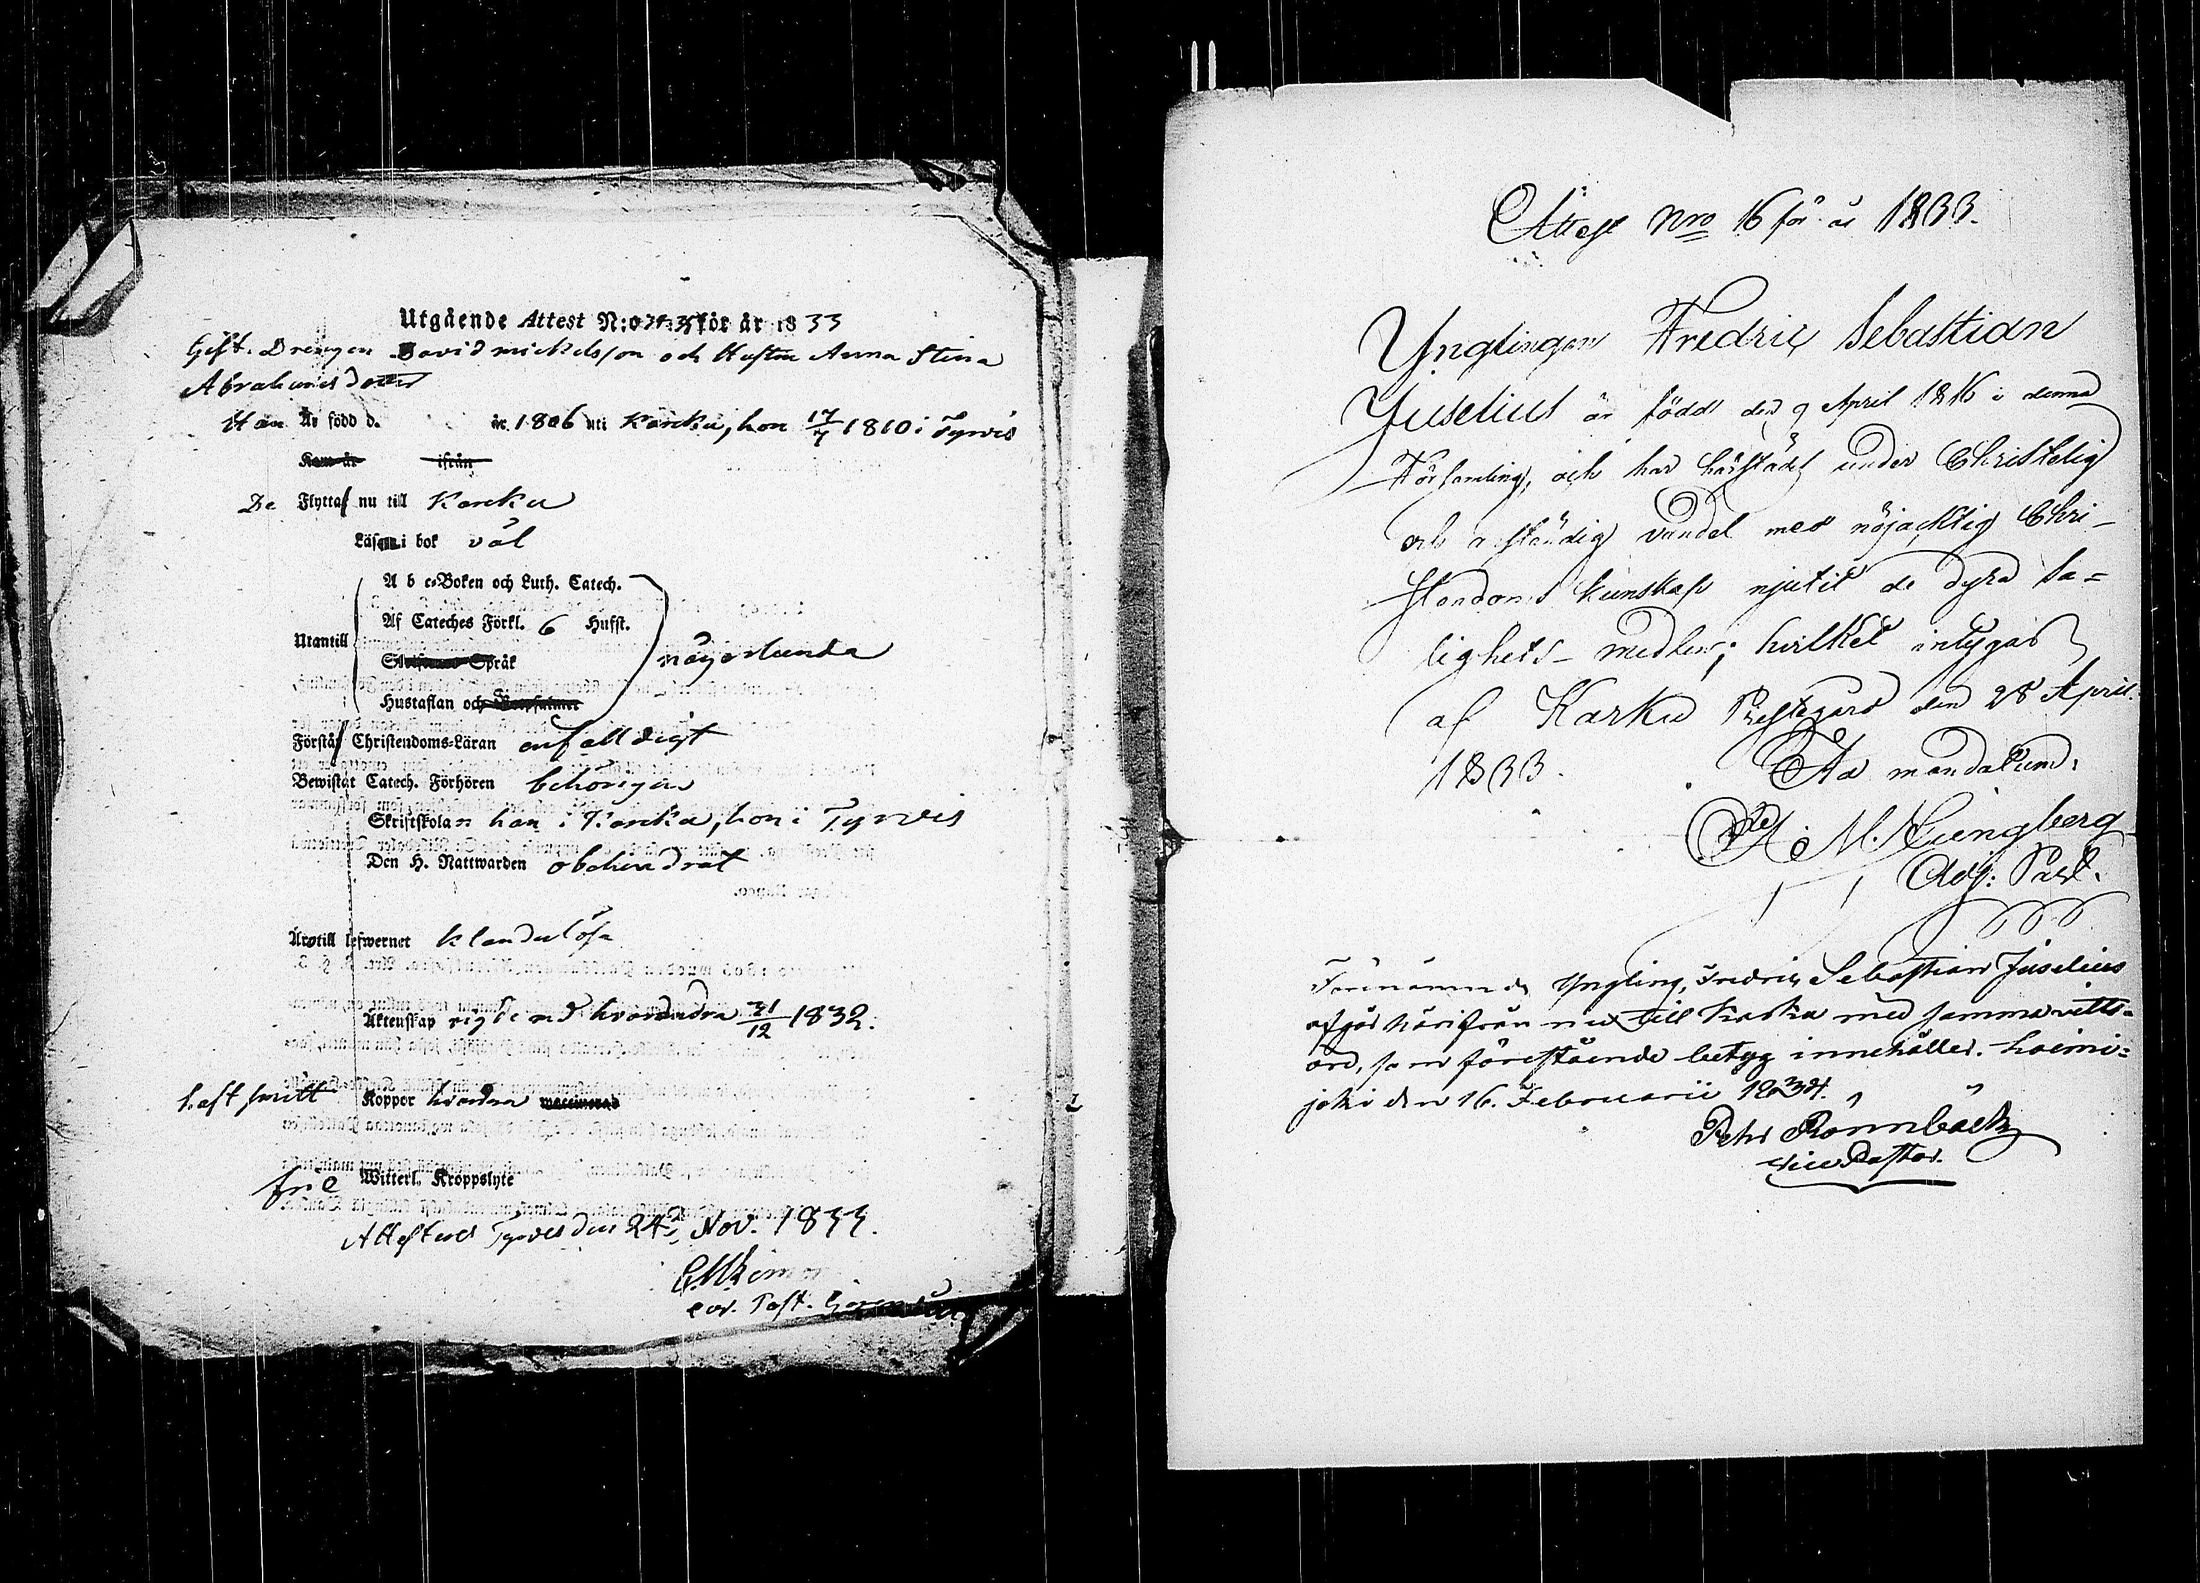 Utgående Attest N:o för år 1833
Gift. Drengen David Mickelsson och Hustru Anna Stina
Abrahamsdotter
Han Är född d. år 1806 uti Karcku, hon 17/7 1810 i Tyrvis
Kom år ifrån
De Flytta nu till Karcku
Läsa i bok väl
A b c-Boken och Luth. Catech.
Af Cateches Förkl. 6 Hufst.
Utantill
Språk
någorlunda
Hustaflan och
Förstå Christendoms-Läran enfalldigt
Bewistat Catech. Förhören behörigen
Skriftskolan han i Karcku, hon i Tyrvis
Den H. Nattwarden obehindrat
Äro till lefwernet klanderlösa
Äktenskap med hvarandra 31/12 1832.
haft Koppor waccinerad
fri Witterl. Kroppslyte
Attesterar Tyrvis den 24 Nov. 1833.
Past.
Attest Nro 16 för år 1833.
Ynglingen Fredric Sebastian
Juselius är född den 9 April 1816 i denna
Församling, och har härstädes under Christelig
och anständig vandel med nöjacktig Chri-
stendoms kunskap njutit de dyra Sa=
lighets-medlen; hvilket intygas
af Karku Prestegård den 28 April
1833. Ad mandatum.
M. Ljungberg
Adj: Past.
Förenämnde Yngling, Fredric Sebastian Juselius
afgår härifrån nu till Karku med samma vitts=
ord, som förestående betyg innehåller. Loimi=
joki den 16. Februarii 1834.
Petr Rönnbäck
Vice Pastor.